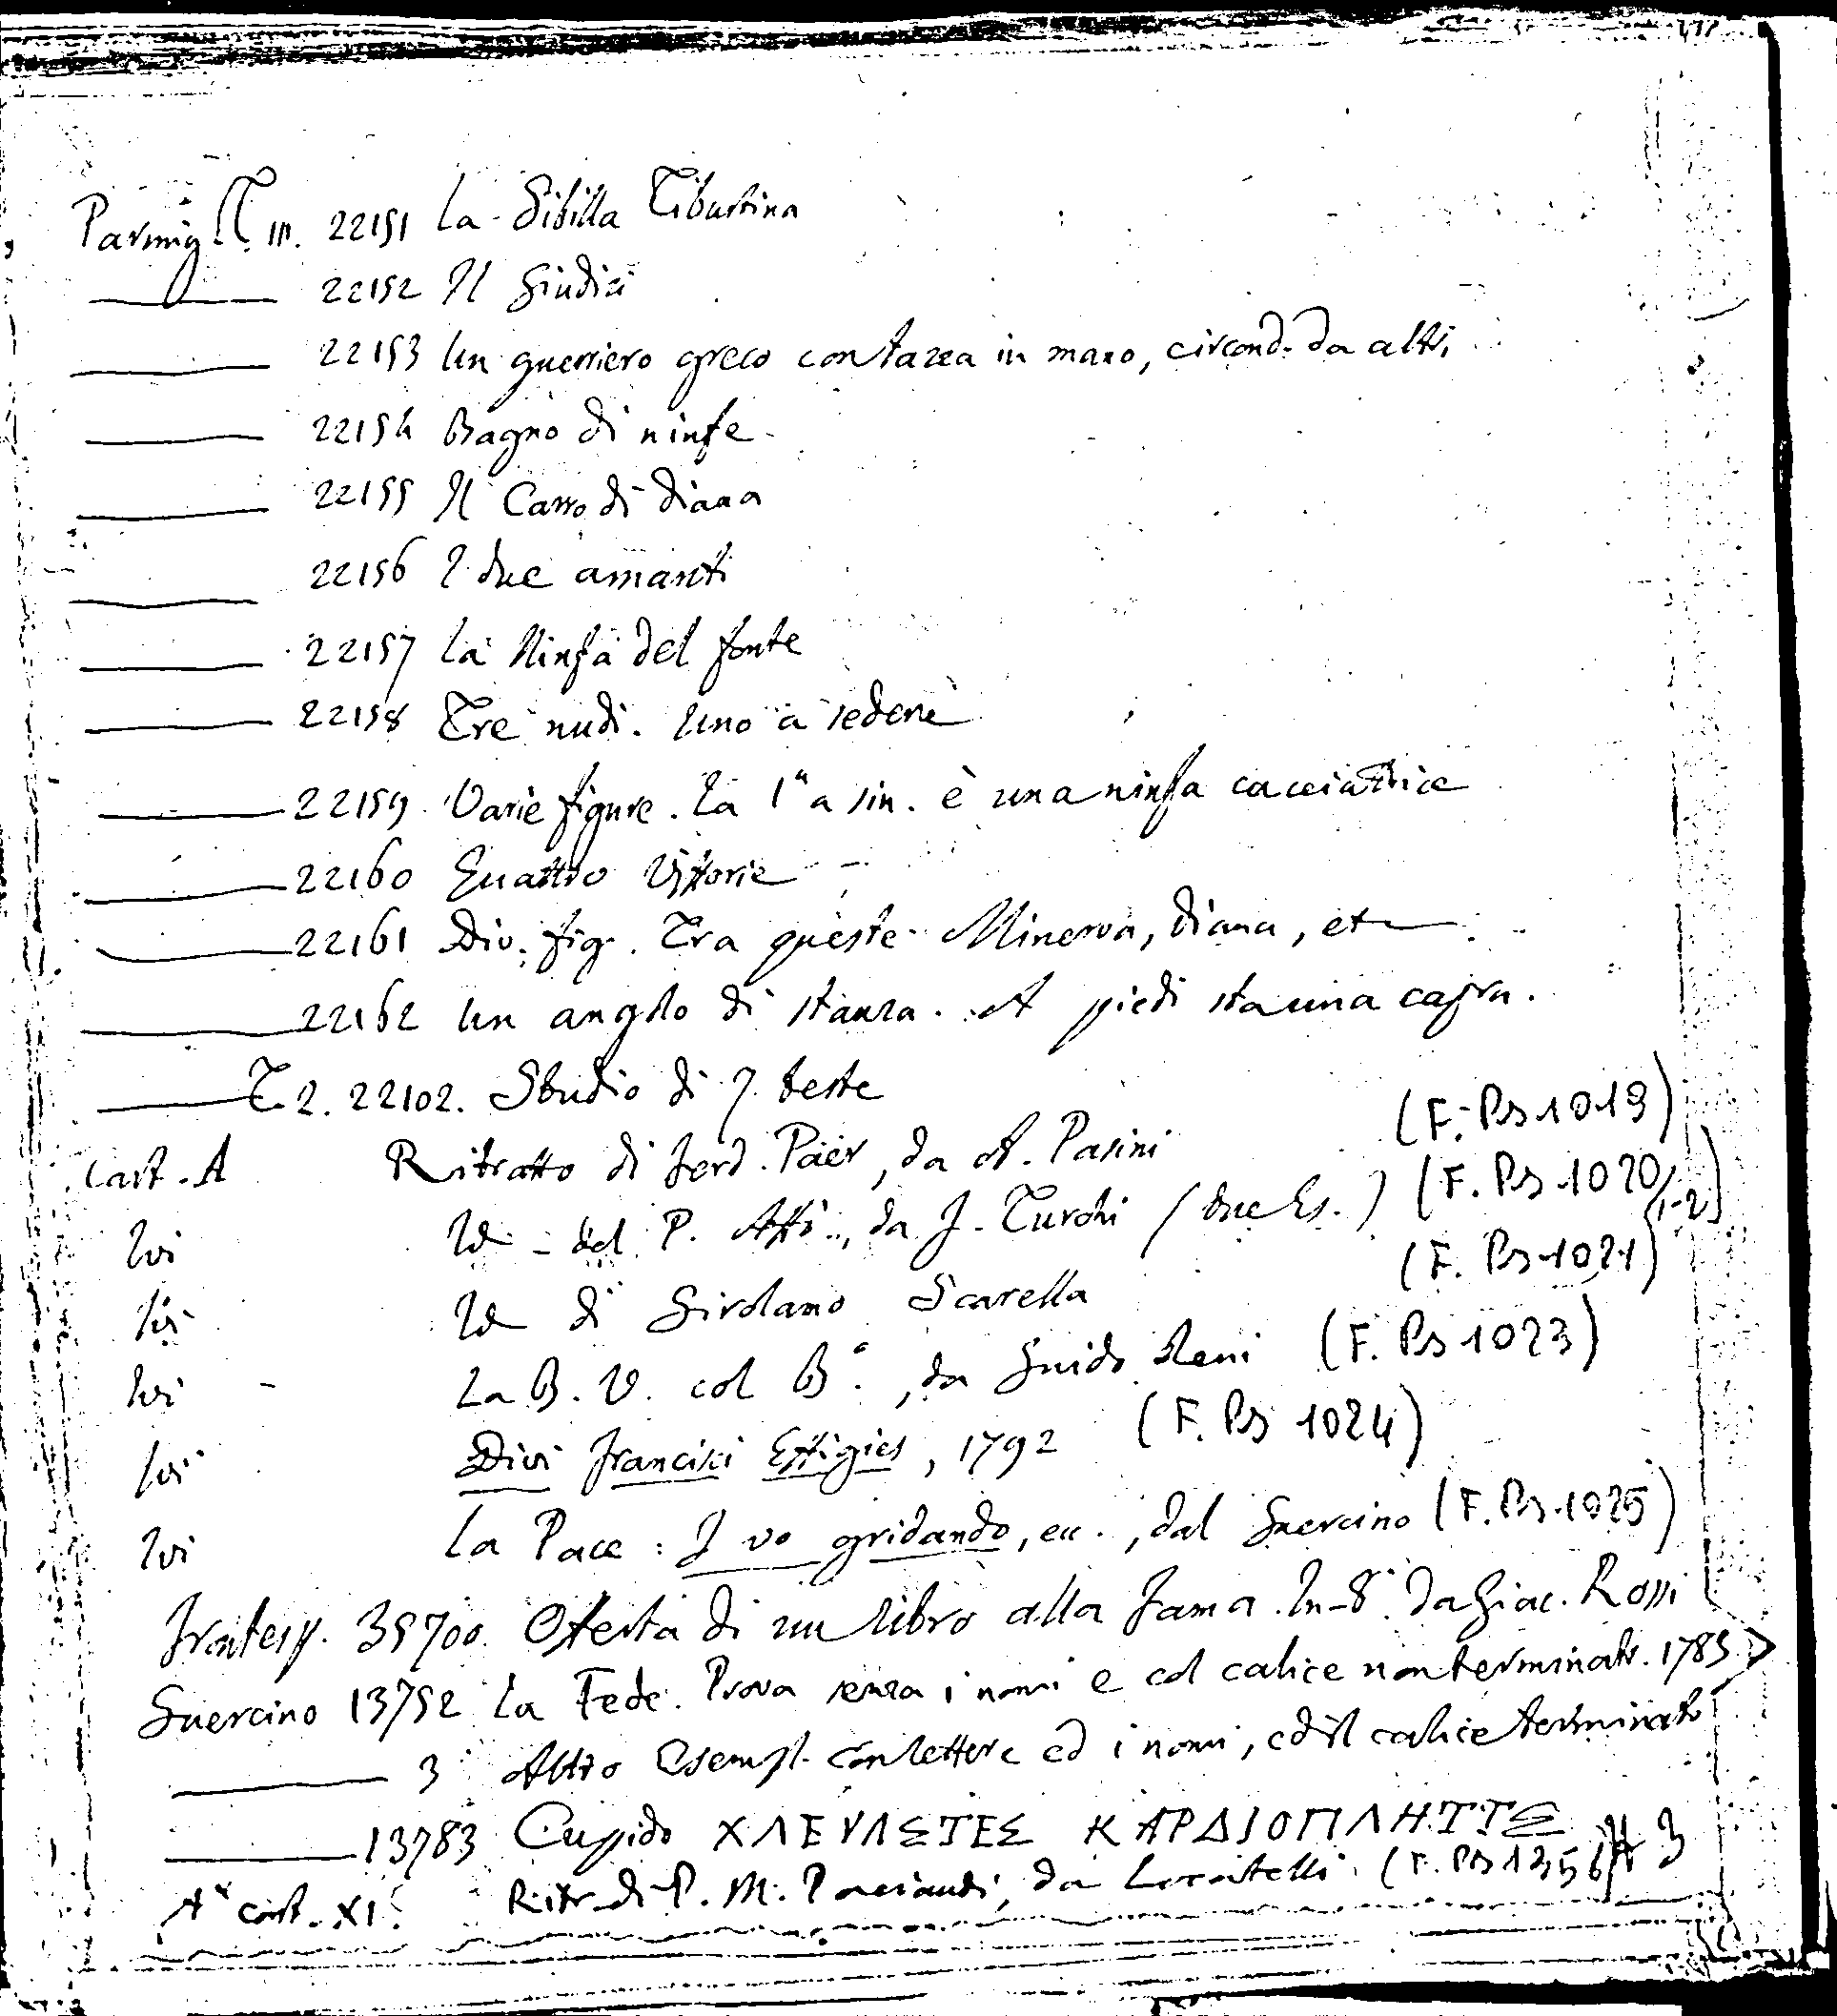 Parmig. T. III. 22151 La Sibilla Tiburtina
22152 Il Giudizi
22153 Un guerriero greco con tazza in mano, circond. da altri
22154 Bagno di ninfe
22155 Il Carro di Diana
22156 I due amanti
22157 La Ninfa del fonte
22158 Tre nudi. Uno a sedere
22159 Varie figure. La 1ª a sin. è una ninfa cacciatrice
22160 Quattro Vittorie
22161 Div. fig. Tra queste Minerva, Diana, etc
22162 Un angolo di stanza. A piedi sta una capra.
T. 2. 22102. Studio di 7. teste
Cart. A Ritratto di Ferd. Paër, da A. Pasini (F. Bs 1019)
Ivi Id - del P. Affò, da J. Turchi (due Es.) (F. Bs 1020/1-2)
Ivi Id di Girolamo Scarella (F. Bs 1021)
Ivi La B. V. col B.º, da Guido Reni (F. Bs 1023)
Ivi Divi Francisci Effigies, 1792 (F. Bs 1024)
Ivi La Pace: I vo gridando, ec., dal Guercino (F. Bs 1025)
Frontesp. 35700. Offerta di un libro alla Fama. In-8º. da Giac. Rossi
Guercino 13752 La Fede. Prova senza i nomi e col calice non terminato. 1783
3 Altro Esempl. con lettere ed i nomi, ed il calice terminato
13783 Cupido ΧΛΕΥΛΣΤΕΣ ΚΑΡΔΙΟΠΛΗΤΤΣ
A* cart. XI. Ritr. di P. M. Paciaudi, da Locatelli (F. Bs 1356)